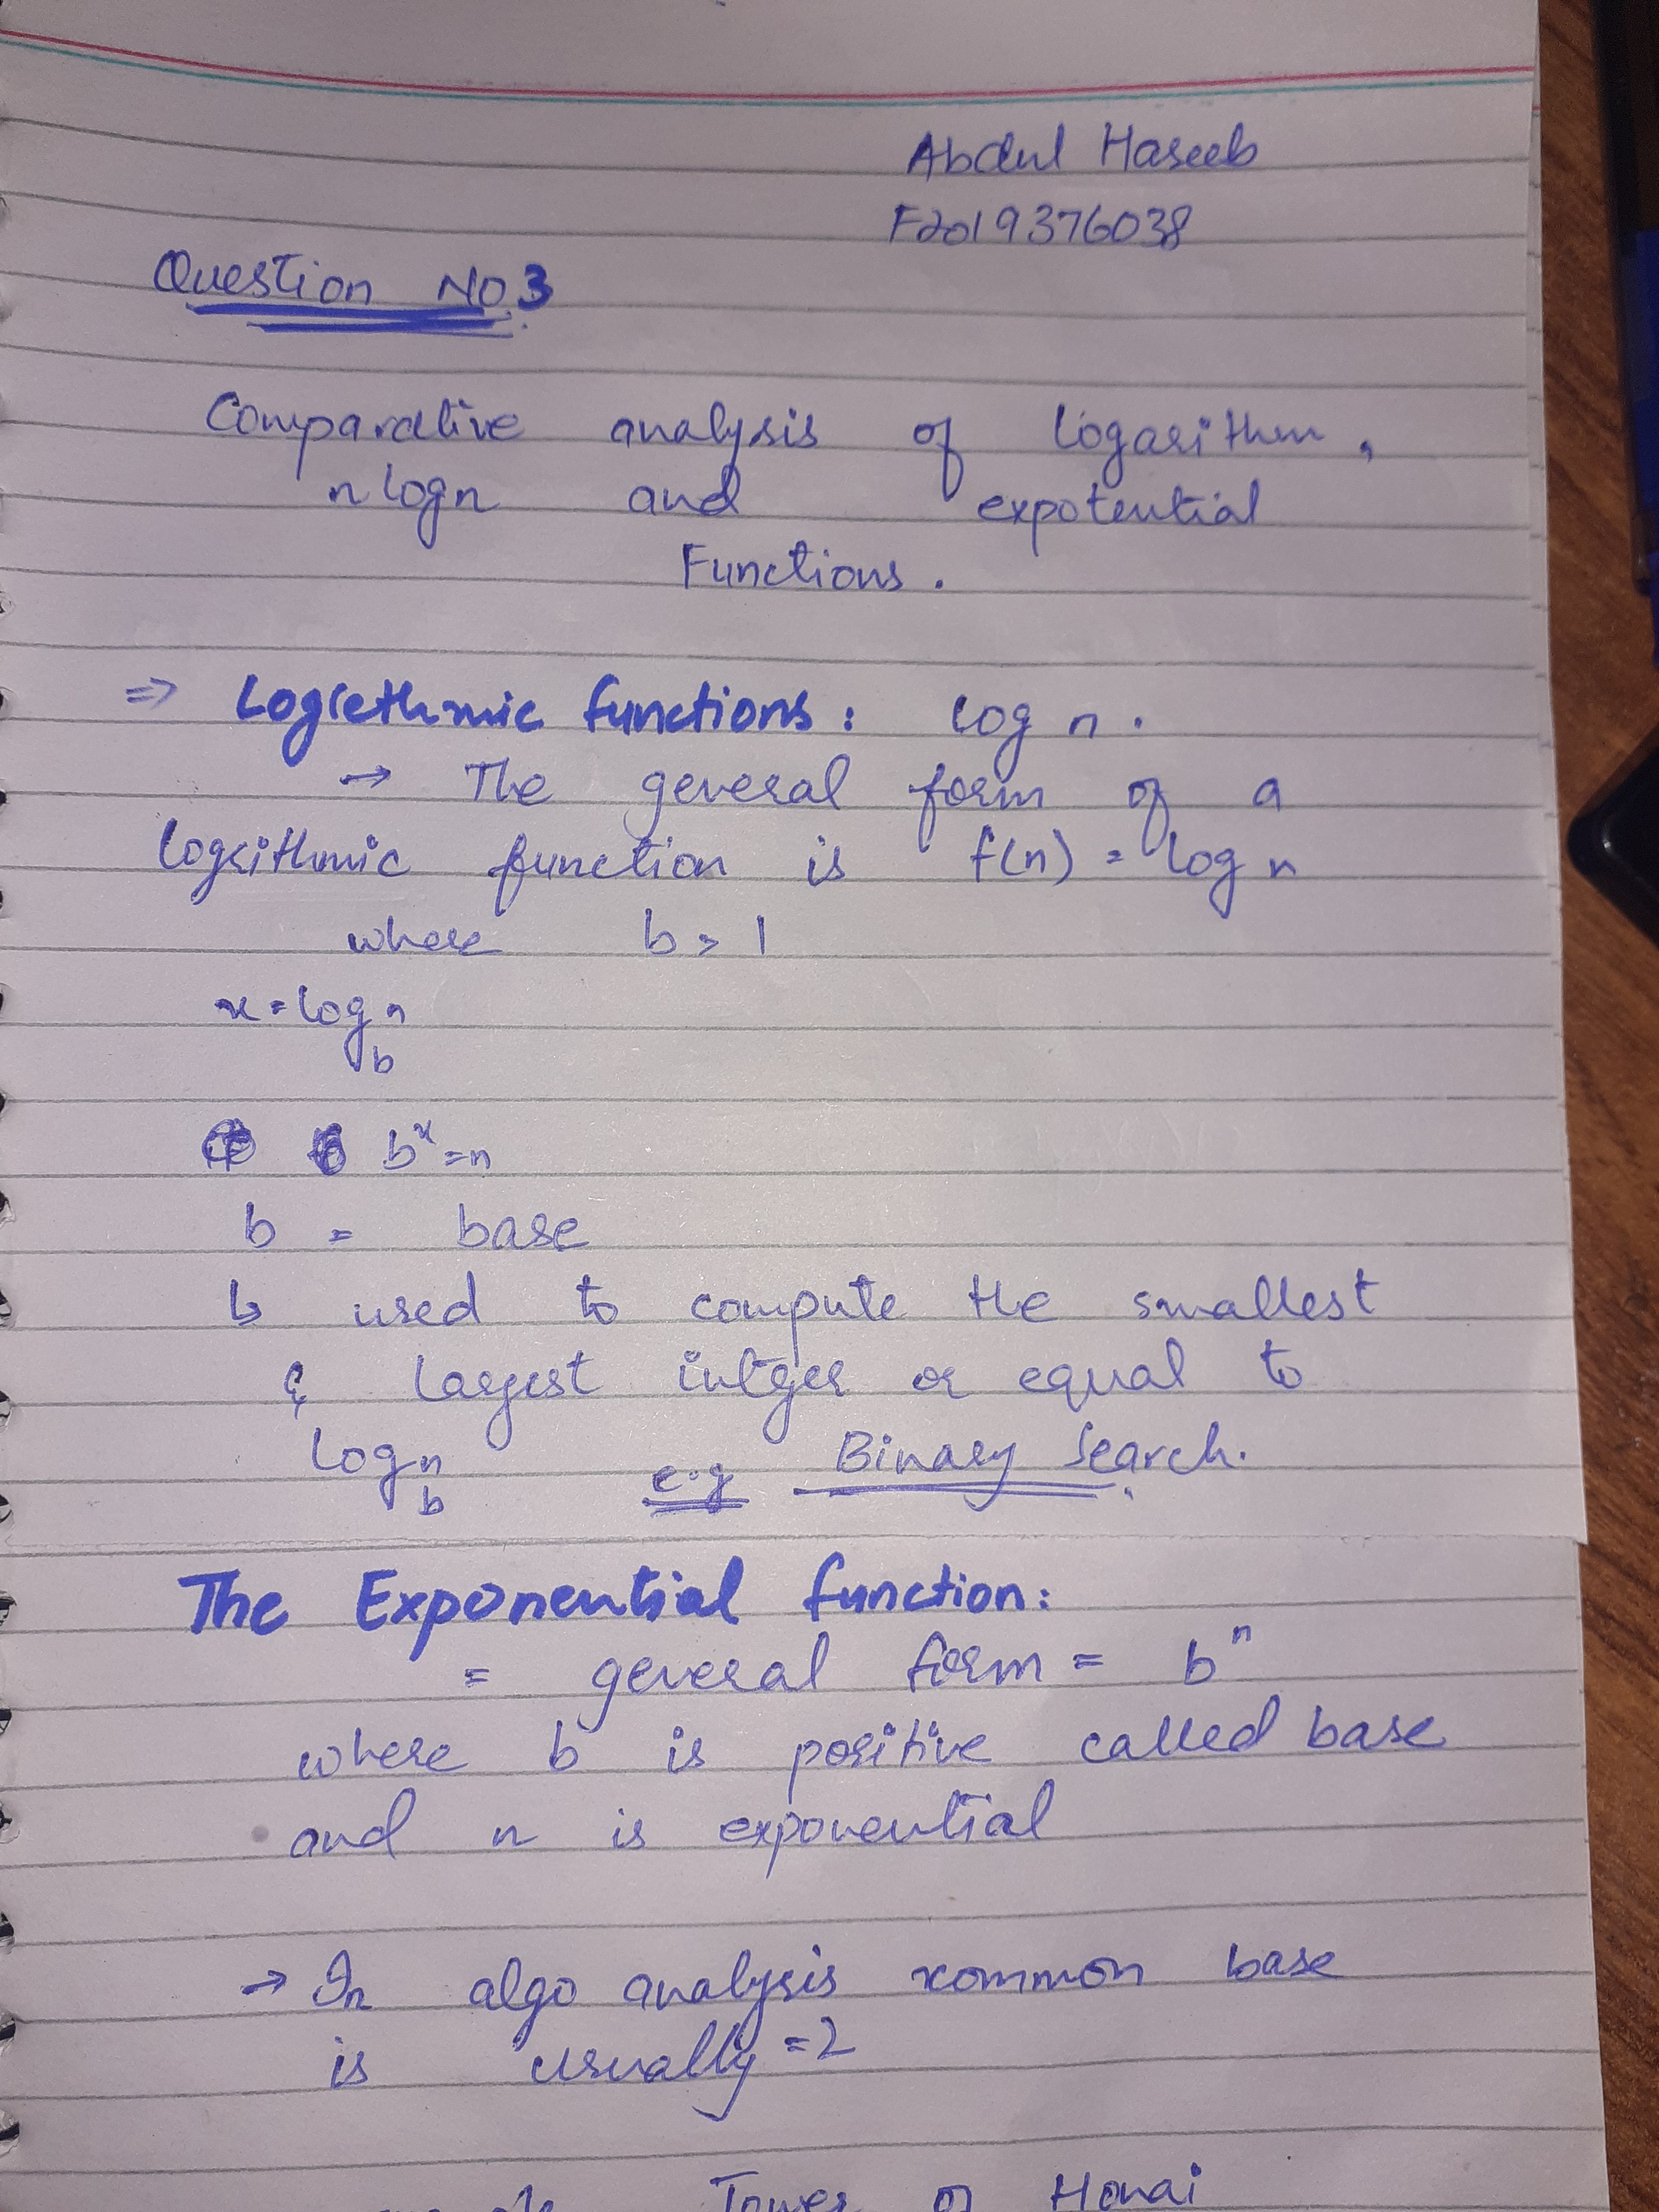 Abdul Haseeb
F2019376038
Question NO.3
Comparative analysis of logarithm,
n logn and expotential
Functions.
⇒ Logrethmic functions: log n.
→ The general form of a
logrithmic function is f(n) = log n
where b > 1
x = log n
b
bˣ = n
b = base
↳ used to compute the smallest
& largest intger or equal to
log n
b
e.g Binary Search.
The Exponential function:
= general form = bⁿ
where b is positive called base
and n is exponential
→ In algo analysis common base
is usually = 2
Tower of Honai